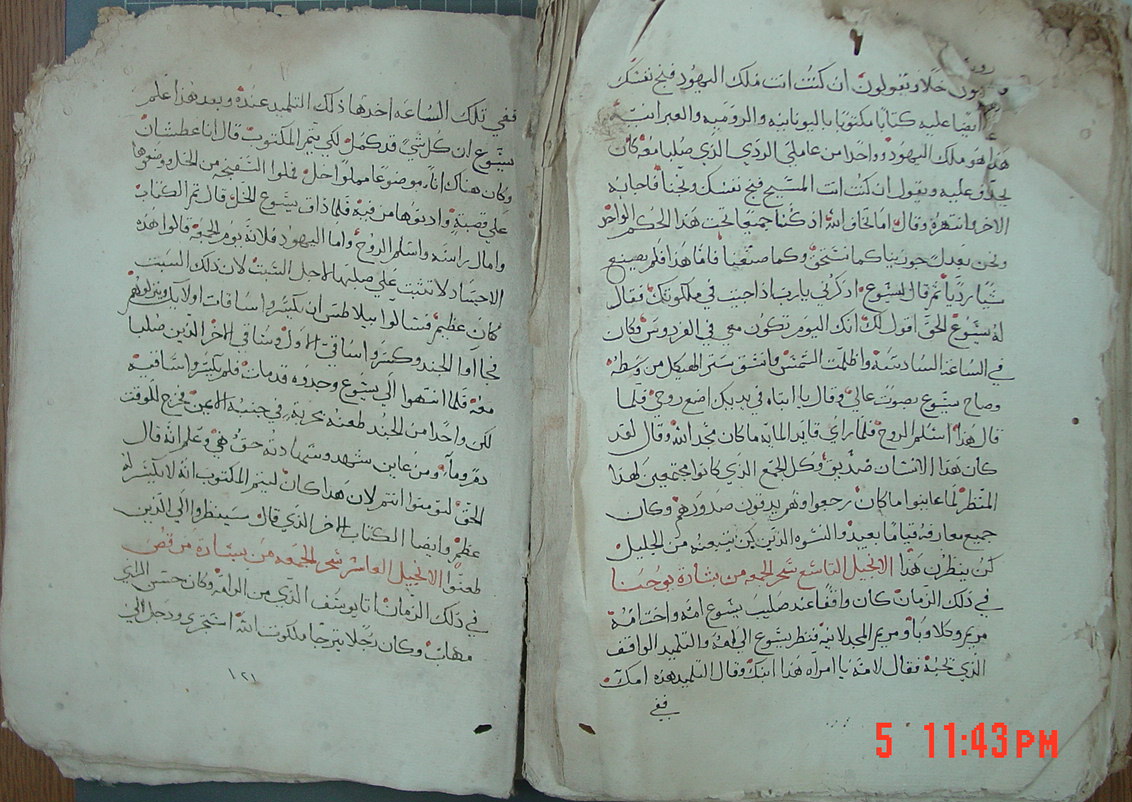 خلا ويقولون ان كنت انت ملك اليهود فنج نفسك
ايضا عليه كتابا مكتوبا باليونانيه والروميه والعبرانيه
هذا هو ملك اليهود وواحدا من عاملي الردي الذي صلبا معه كان
يجدف عليه ويقول ان كنت انت المسيح فنج نفسك ونجنا فاجابه
الاخر وانتهره وقال اما تخاف الله اذ كنا جميعا تحت هذا الحكم الواحد
ونحن بعدل جوزينا كما نستحق وكما صنعنا فاما هذا فلم يصنع
شيا رديا ثم قال ليسوع اذكرني يا رب اذا جيت في ملكوتك فقال
له يسوع الحق اقول لك انك اليوم تكون معي في الفردوس وكان
في الساعة السادسة واظلمت الشمس وانشق ستر الهيكل من وسطه
وصاح يسوع بصوت عالي وقال يا ابتاه في يديك اضع روحي فلما
قال هذا اسلم الروح فلما راي قايد المايه ما كان مجد الله وقال لقد
كان هذا الانسان صديق وكل الجمع الذي كانوا مجتمعين لهذا
المنظر لما عاينوا ما كان رجعوا وهم يدقون صدورهم وكان
جميع معارفه قياما بعيد والنسوه الذين كن يتبعنه من الجليل
كن ينظرن هذا الانجيل التاسع سحر الجمعه من بشارة يوحنا
في ذلك الزمان كان واقفا عند صليب يسوع امه واخت امه
مريم وكلاوبا ومريم المجدلانيه فنظر يسوع الي امه والتلميد الواقف
الذي يحبه فقال لامه يا امراه هذا ابنك وقال التلميد هذه امك
ففي
ففي تلك الساعه اخدها ذلك التلميد عنده وبعد هذا علم
يسوع ان كل شي قد كمل لكي يتم المكتوب قال انا عطشان
وكان هناك اناء موضوعا مملوا خل فملوا السفنجه من الخل ووضوها
علي قصبة وادنوها من فيه فلما ذاق يسوع الخل قال تم الكتاب
وامال راسه واسلم الروح واما اليهود فلانه يوم الجمعه قالوا هذه
الاجساد لا تثبت علي صلبها لاجل السبت لان ذلك السبت
كان عظيم فسالوا بيلاطس ان يكسروا ساقات اولايك وينزلوهم
فجاوا الجند وكسروا ساقي الاول وساقي الاخر الذين صلبا
معه فلما انتهوا الي يسوع وجدوه قد مات فلم يكسروا ساقيه
لكن واحدا من الجند طعنه بحربه في جنبه الايمن فخرج للوقت
دم وماء ومن عاين شهد وشهادته حق هي وعلم انه قال
الحق لتومنوا انتم لان هذا كان ليتم المكتوب انه لا يكسر له
عظم وايضا الكتاب الاخر الذي قال سينظروا الي الذين
طعنوا الانجيل العاشر سحر الجمعه من بشارة مرقص
في ذلك الزمان اتا يوسف الذي من الرامه وكان حسن الراي
مهاب وكان رجلا يترجا ملكوت الله استجري ودخل الي
١٢١
5 11:43 PM